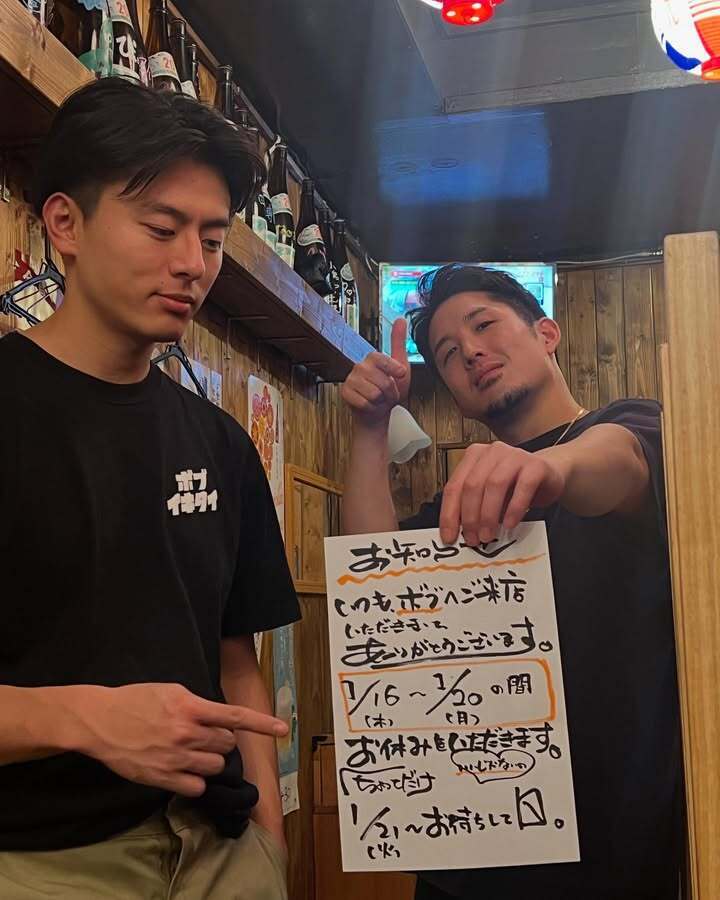 ボブ
イキタイ
お知らせ
いつも、ボブへご来店
いただきまして
ありがとうございます。
1/16〜1/20の間
(木) (月)
お休みをいただきます。
ちょっとだけ
いいじゃないの
1/21〜お待ちして
(火)